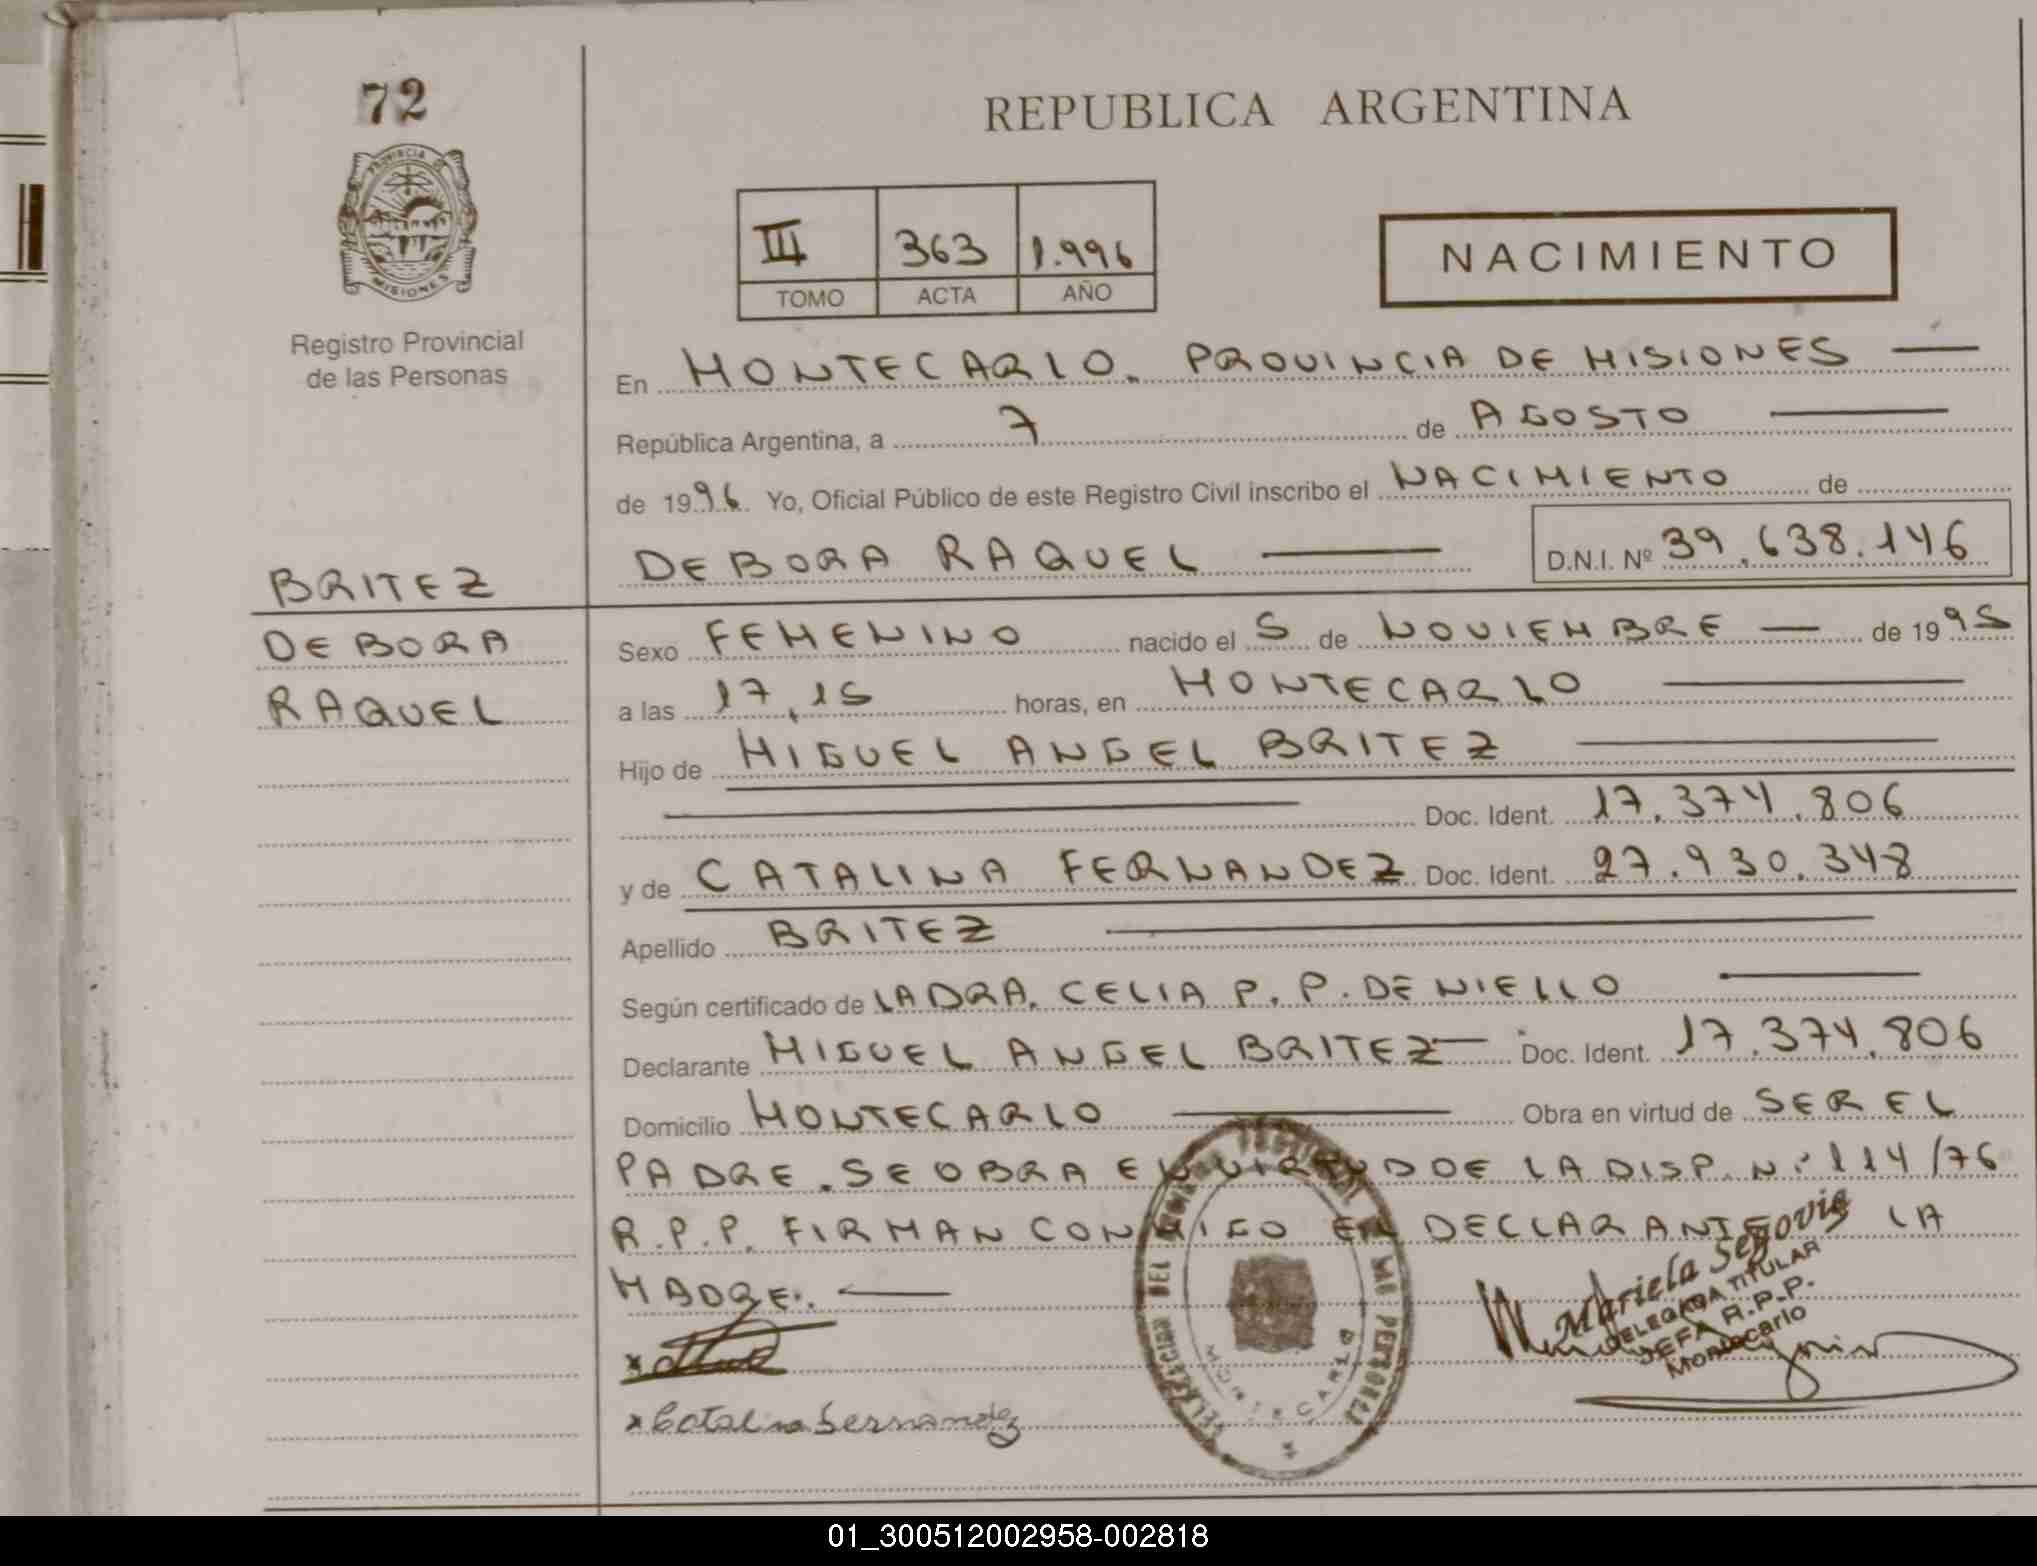 72
REPUBLICA ARGENTINA
PROVINCIA DE
MISIONES
Registro Provincial
de las Personas
III 363 1.996
TOMO ACTA AÑO
NACIMIENTO
En MONTECARLO. PROVINCIA DE MISIONES
República Argentina, a 7 de AGOSTO
de 1996. Yo, Oficial Público de este Registro Civil inscribo el NACIMIENTO de
DEBORA RAQUEL D.N.I. Nº 39.638.146
BRITEZ
DEBORA
RAQUEL
Sexo FEMENINO nacido el 5 de NOVIEMBRE de 1995
a las 17,15 horas, en MONTECARLO
Hijo de MIGUEL ANGEL BRITEZ
Doc. Ident. 17.374.806
y de CATALINA FERNANDEZ Doc. Ident. 27.930.348
Apellido BRITEZ
Según certificado de LA DRA. CELIA P. P. DE NIELLO
Declarante MIGUEL ANGEL BRITEZ Doc. Ident. 17.374.806
Domicilio MONTECARLO Obra en virtud de SER EL
PADRE. SE OBRA EN VIRTUD DE LA DISP. N.º 114/76
R.P.P. FIRMAN CONMIGO EL DECLARANTE LA
MADRE.
Mariela Segovia
DELEGADA TITULAR
JEFA R.P.P.
Montecarlo
x Catalina Fernandez
MONTECARLO
01_300512002958-002818